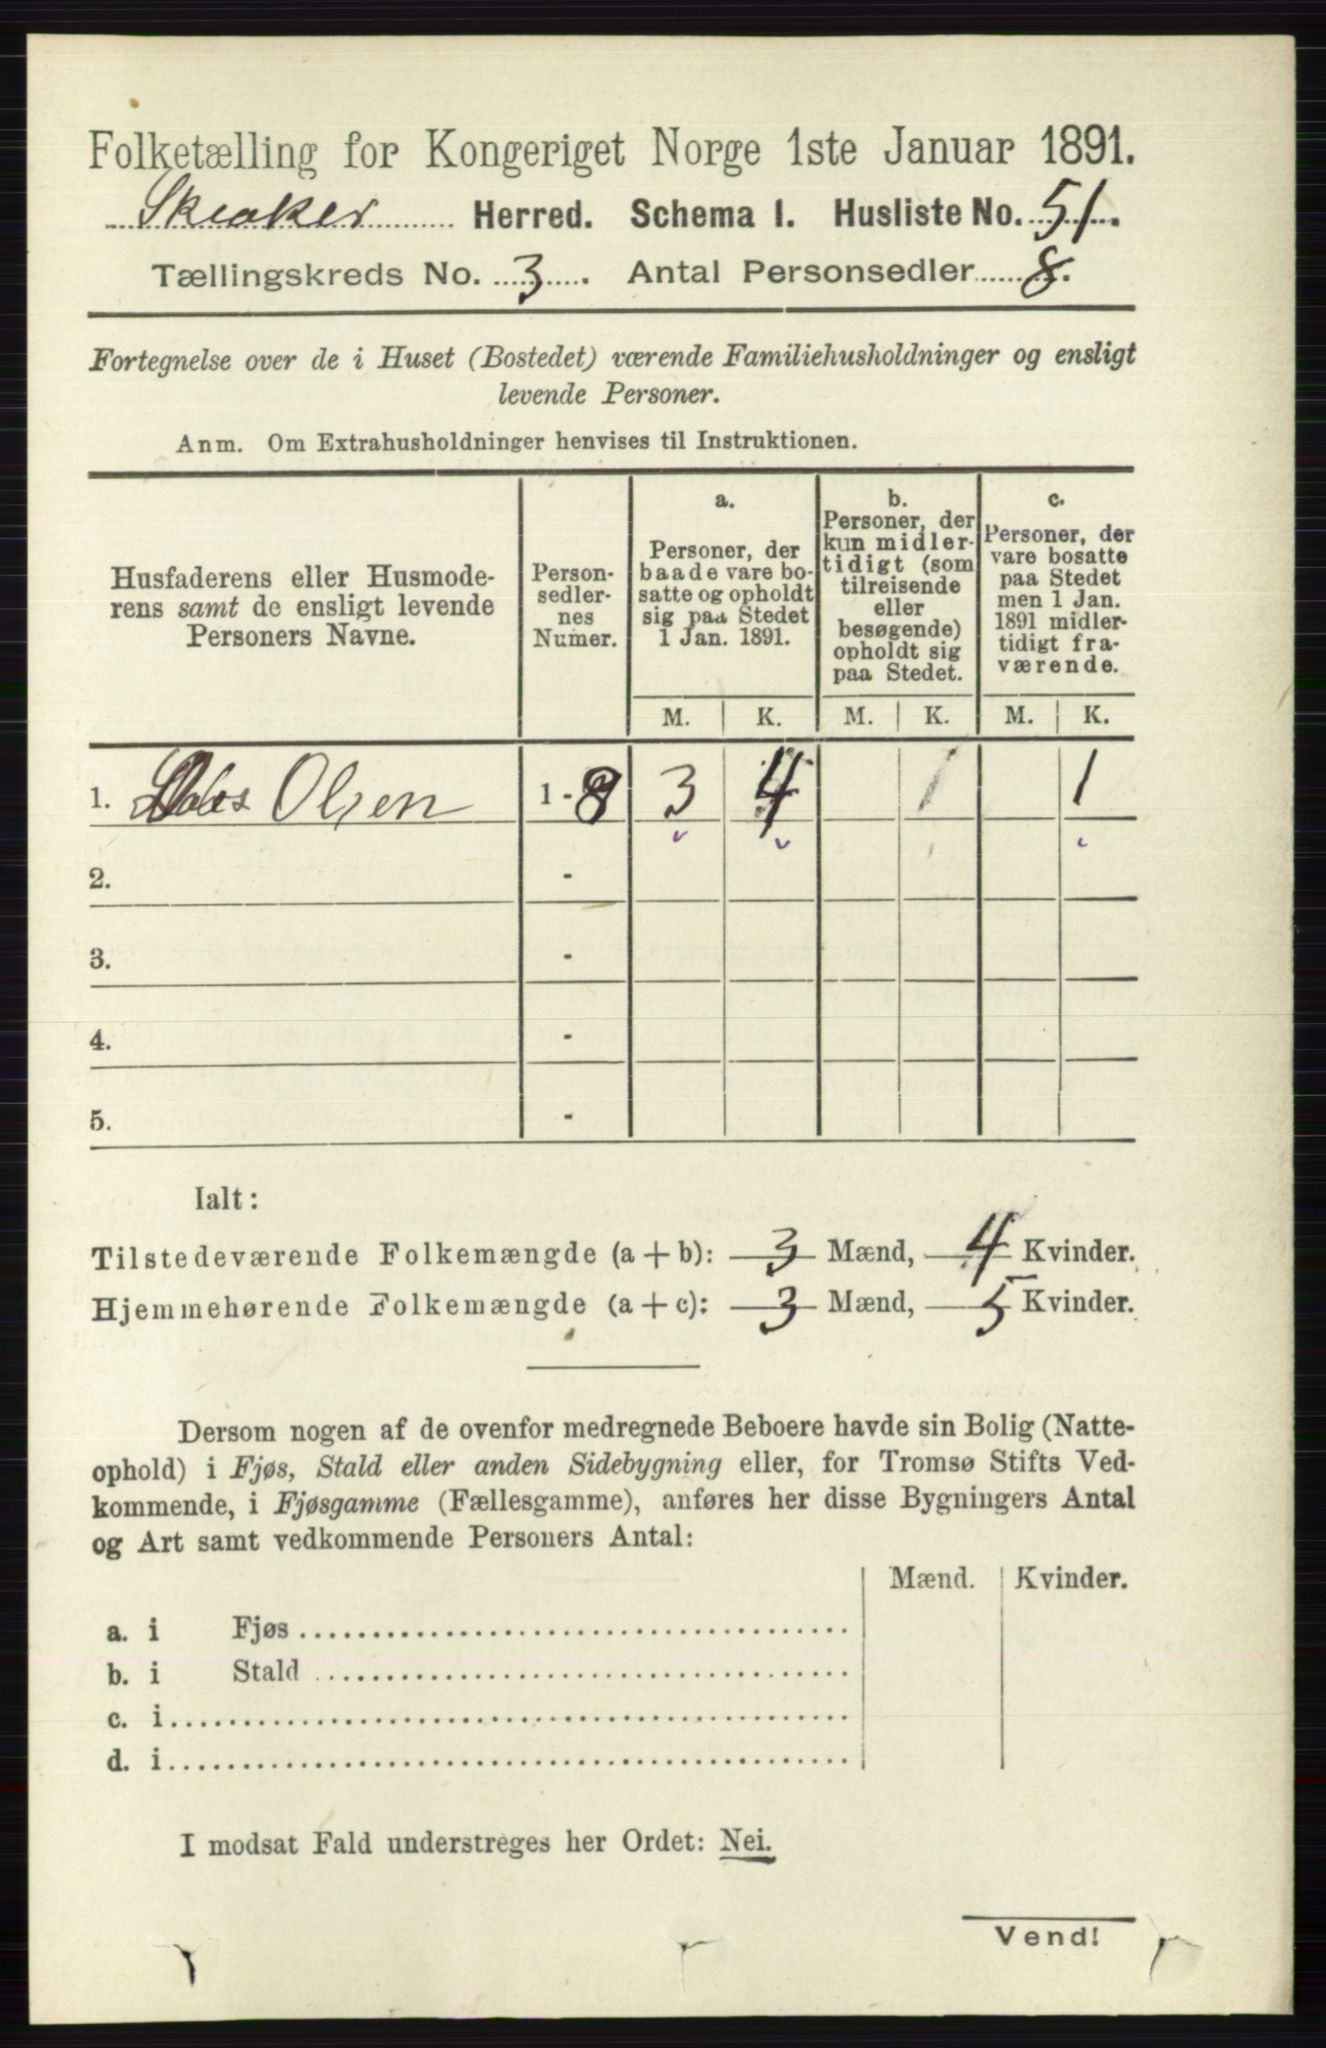 Folketælling for Kongeriget Norge 1ste Januar 1891.
Skiaker Herred. Schema I. Husliste No. 51.
Tællingskreds No. 3. Antal Personsedler 8.
Fortegnelse over de i Huset (Bostedet) værende Familiehusholdninger og ensligt
levende Personer.
Anm. Om Extrahusholdninger henvises til Instruktionen.
Husfaderens eller Husmode-
rens samt de ensligt levende
Personers Navne.
Person-
sedler-
nes
Numer.
a.
Personer, der
baade vare bo-
satte og opholdt
sig paa Stedet
1 Jan. 1891.
b.
Personer, der
kun midler-
tidigt (som
tilreisende
eller
besøgende)
opholdt sig
paa Stedet.
c.
Personer, der
vare bosatte
paa Stedet
men 1 Jan.
1891 midler-
tidigt fra-
værende.
M. K. M. K. M. K.
1. Olsen 1 - 8 3 4 1 1
2. -
3. -
4. -
5. -
Ialt:
Tilstedeværende Folkemængde (a + b): 3 Mænd, 4 Kvinder.
Hjemmehørende Folkemængde (a + c): 3 Mænd, 5 Kvinder.
Dersom nogen af de ovenfor medregnede Beboere havde sin Bolig (Natte-
ophold) i Fjøs, Stald eller anden Sidebygning eller, for Tromsø Stifts Ved-
kommende, i Fjøsgamme (Fællesgamme), anføres her disse Bygningers Antal
og Art samt vedkommende Personers Antal:
Mænd. Kvinder.
a. i Fjøs
b. i Stald
c. i
d. i
I modsat Fald understreges her Ordet: Nei.
Vend!